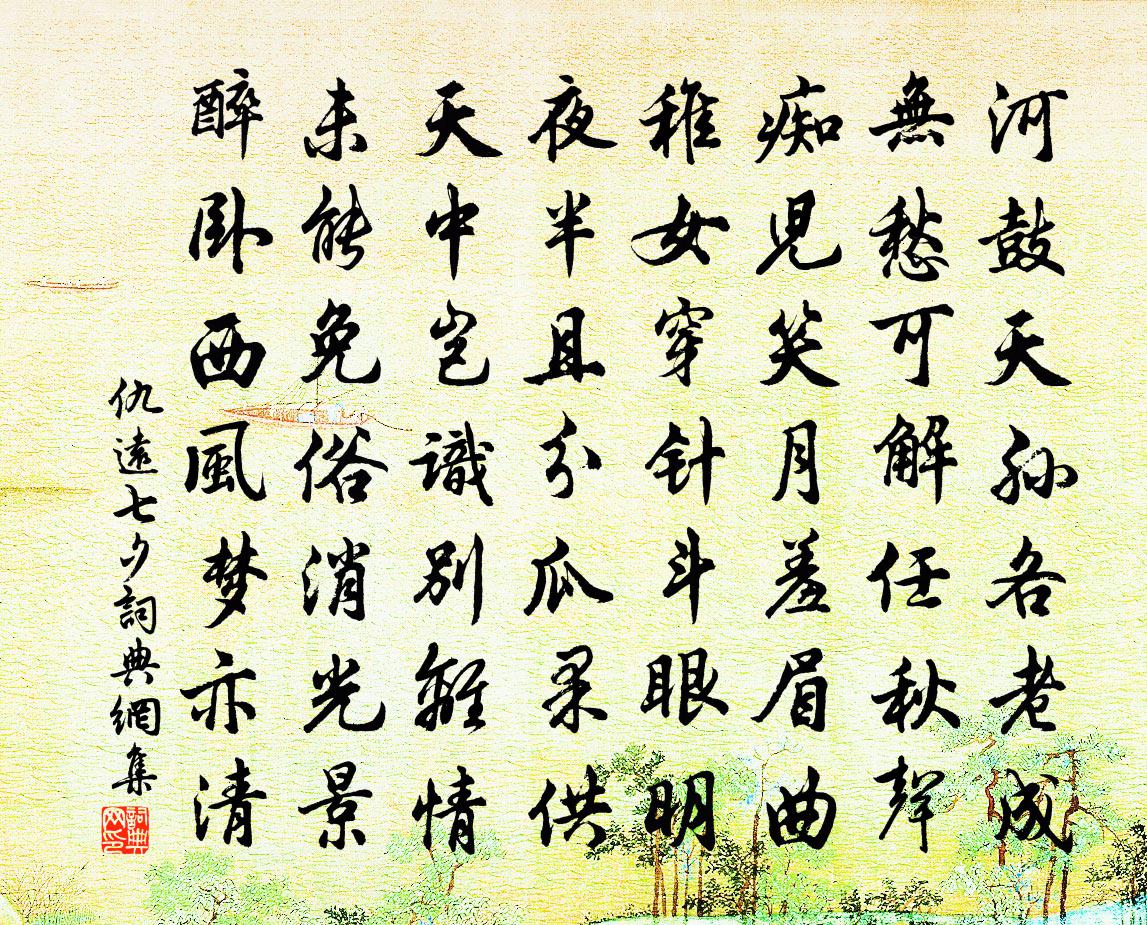 河鼓天孙各老成
無愁可解任秋聲
痴児笑月羞眉曲
稚女穿针斗眼明
夜半且分瓜果供
天中岂識别離情
未能免俗消光景
醉卧西風梦亦清
仇遠七夕詞典網集
詞典网印